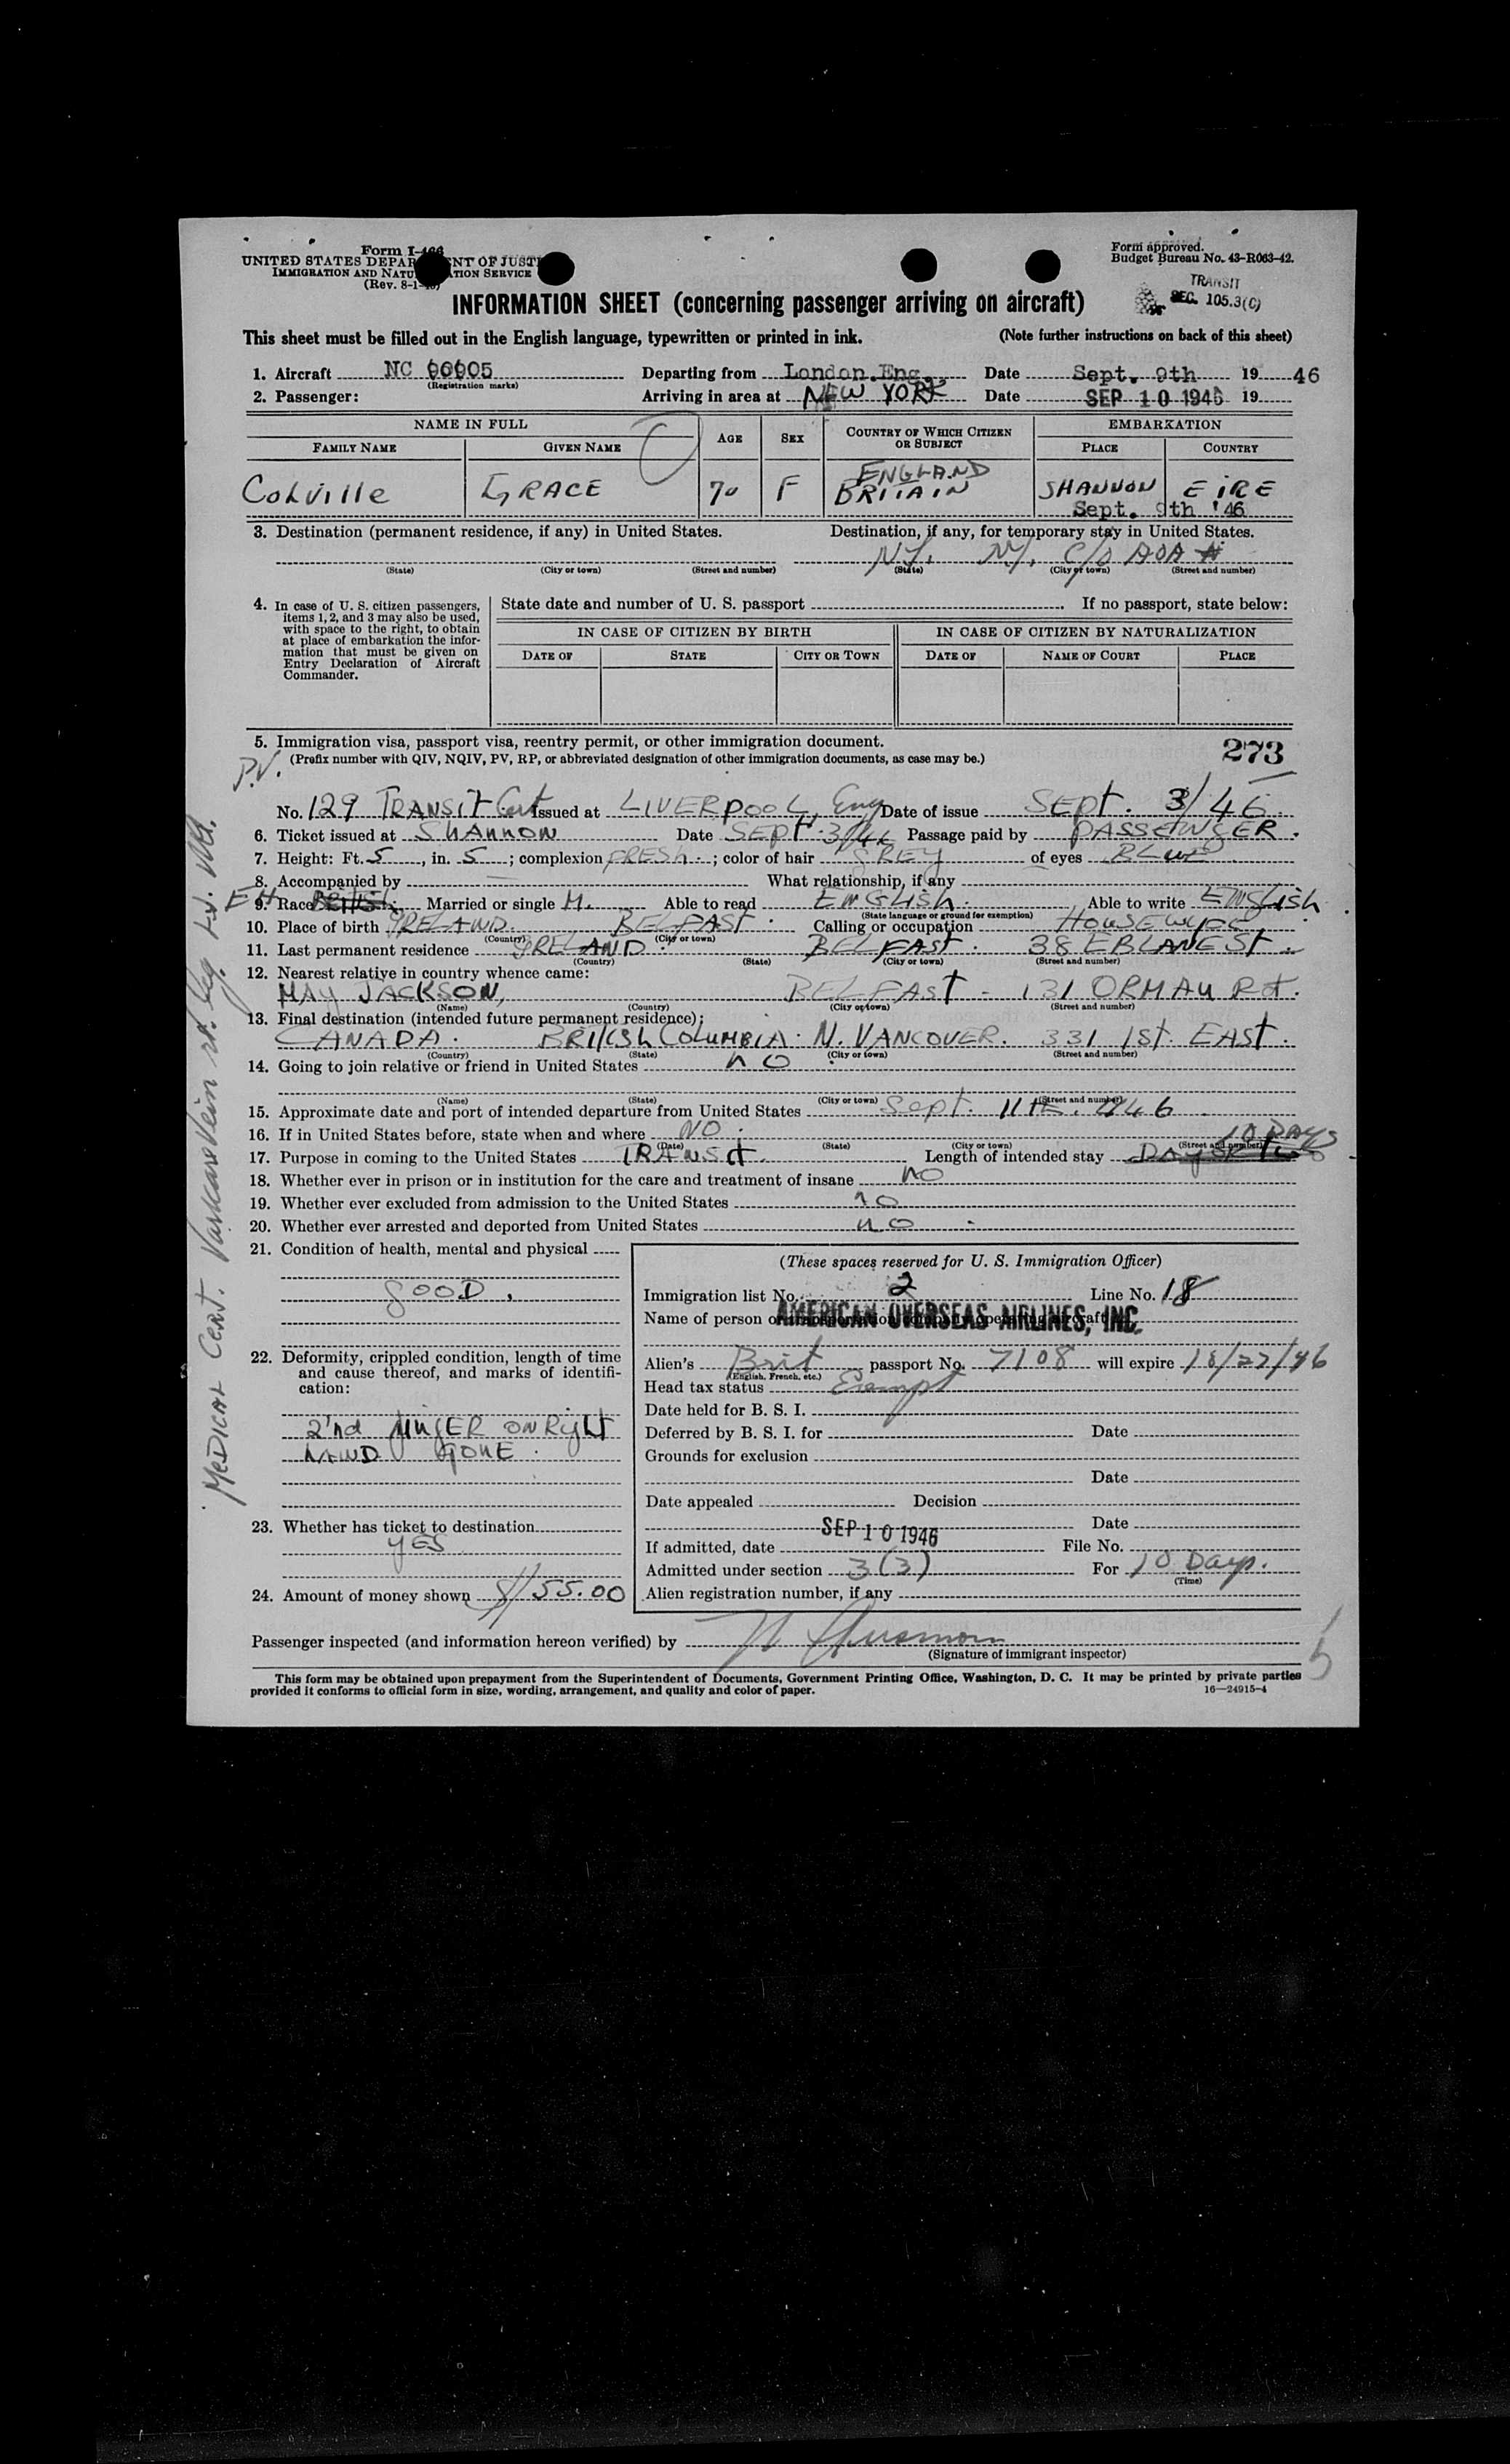 Form I-466
UNITED STATES DEPARTMENT OF JUSTICE
IMMIGRATION AND NATURALIZATION SERVICE
(Rev. 8-1-
Form approved.
Budget Bureau No. 43-R063-42.
TRANSIT
SEC. 105.3(C)
INFORMATION SHEET (concerning passenger arriving on aircraft)
This sheet must be filled out in the English language, typewritten or printed in ink. (Note further instructions on back of this sheet)
1. Aircraft NC 90905 Departing from London.Eng. Date Sept. 9th 19 46
(Registration marks)
2. Passenger: Arriving in area at NEW YORK Date SEP 10 1946 19
NAME IN FULL AGE SEX COUNTRY OF WHICH CITIZEN OR SUBJECT EMBARKATION
FAMILY NAME GIVEN NAME PLACE COUNTRY
ENGLAND
Colville GRACE 70 F BRITAIN SHANNON EIRE
Sept. 9th '46
3. Destination (permanent residence, if any) in United States. Destination, if any, for temporary stay in United States.
NY. NY, C/O AOA
(State) (City or town) (Street and number) (State) (City or town) (Street and number)
4. In case of U. S. citizen passengers, items 1, 2, and 3 may also be used, with space to the right, to obtain at place of embarkation the information that must be given on Entry Declaration of Aircraft Commander.
State date and number of U. S. passport If no passport, state below:
IN CASE OF CITIZEN BY BIRTH IN CASE OF CITIZEN BY NATURALIZATION
DATE OF STATE CITY OR TOWN DATE OF NAME OF COURT PLACE
5. Immigration visa, passport visa, reentry permit, or other immigration document. 273
(Prefix number with QIV, NQIV, PV, RP, or abbreviated designation of other immigration documents, as case may be.)
P.V.
No. 129 TRANSIT Cert Issued at LIVERPOOL, Eng Date of issue SEPT. 3/46
6. Ticket issued at SHANNON Date SEPT. 3/46 Passage paid by PASSENGER.
7. Height: Ft. 5, in. 5; complexion FRESH.; color of hair GREY of eyes BLUE
8. Accompanied by — What relationship, if any
EH 9. Race British Married or single M. Able to read ENGLISH. Able to write ENGLISH.
(State language or ground for exemption)
10. Place of birth IRELAND. BELFAST. Calling or occupation HOUSEWIFE
(Country) (City or town)
11. Last permanent residence IRELAND. BELFAST. 38 EBLANE ST.
(Country) (State) (City or town) (Street and number)
12. Nearest relative in country whence came:
MAY JACKSON, BELFAST - 131 ORMAU Rd.
(Name) (Country) (City or town) (Street and number)
13. Final destination (intended future permanent residence):
CANADA. BRITISH COLUMBIA. N. VANCOVER. 331 1St. EAST.
(Country) (State) (City or town) (Street and number)
14. Going to join relative or friend in United States NO
(Name) (State) (City or town) (Street and number)
15. Approximate date and port of intended departure from United States Sept. 11th. 1946
16. If in United States before, state when and where NO.
(Date) (State) (City or town) (Street and number)
10 DAYS
17. Purpose in coming to the United States TRANSIT. Length of intended stay
18. Whether ever in prison or in institution for the care and treatment of insane NO
19. Whether ever excluded from admission to the United States NO
20. Whether ever arrested and deported from United States NO
21. Condition of health, mental and physical
GOOD.
22. Deformity, crippled condition, length of time and cause thereof, and marks of identification:
2nd FINGER ON RIGHT
HAND GONE.
23. Whether has ticket to destination
YES
24. Amount of money shown $55.00
(These spaces reserved for U. S. Immigration Officer)
Immigration list No. 2 Line No. 18
Name of person or transportation company operating aircraft AMERICAN OVERSEAS AIRLINES, INC.
Alien's Brit passport No. 7108 will expire 18/27/46
(English, French, etc.)
Head tax status Exempt
Date held for B. S. I.
Deferred by B. S. I. for Date
Grounds for exclusion
Date
Date appealed Decision
Date
If admitted, date SEP 10 1946 File No.
Admitted under section 3(3) For 10 Days.
(Time)
Alien registration number, if any
Passenger inspected (and information hereon verified) by
(Signature of immigrant inspector)
This form may be obtained upon prepayment from the Superintendent of Documents, Government Printing Office, Washington, D. C. It may be printed by private parties
provided it conforms to official form in size, wording, arrangement, and quality and color of paper. 16—24915-4
MEDICAL Cert. Varicose Vein rt. leg.